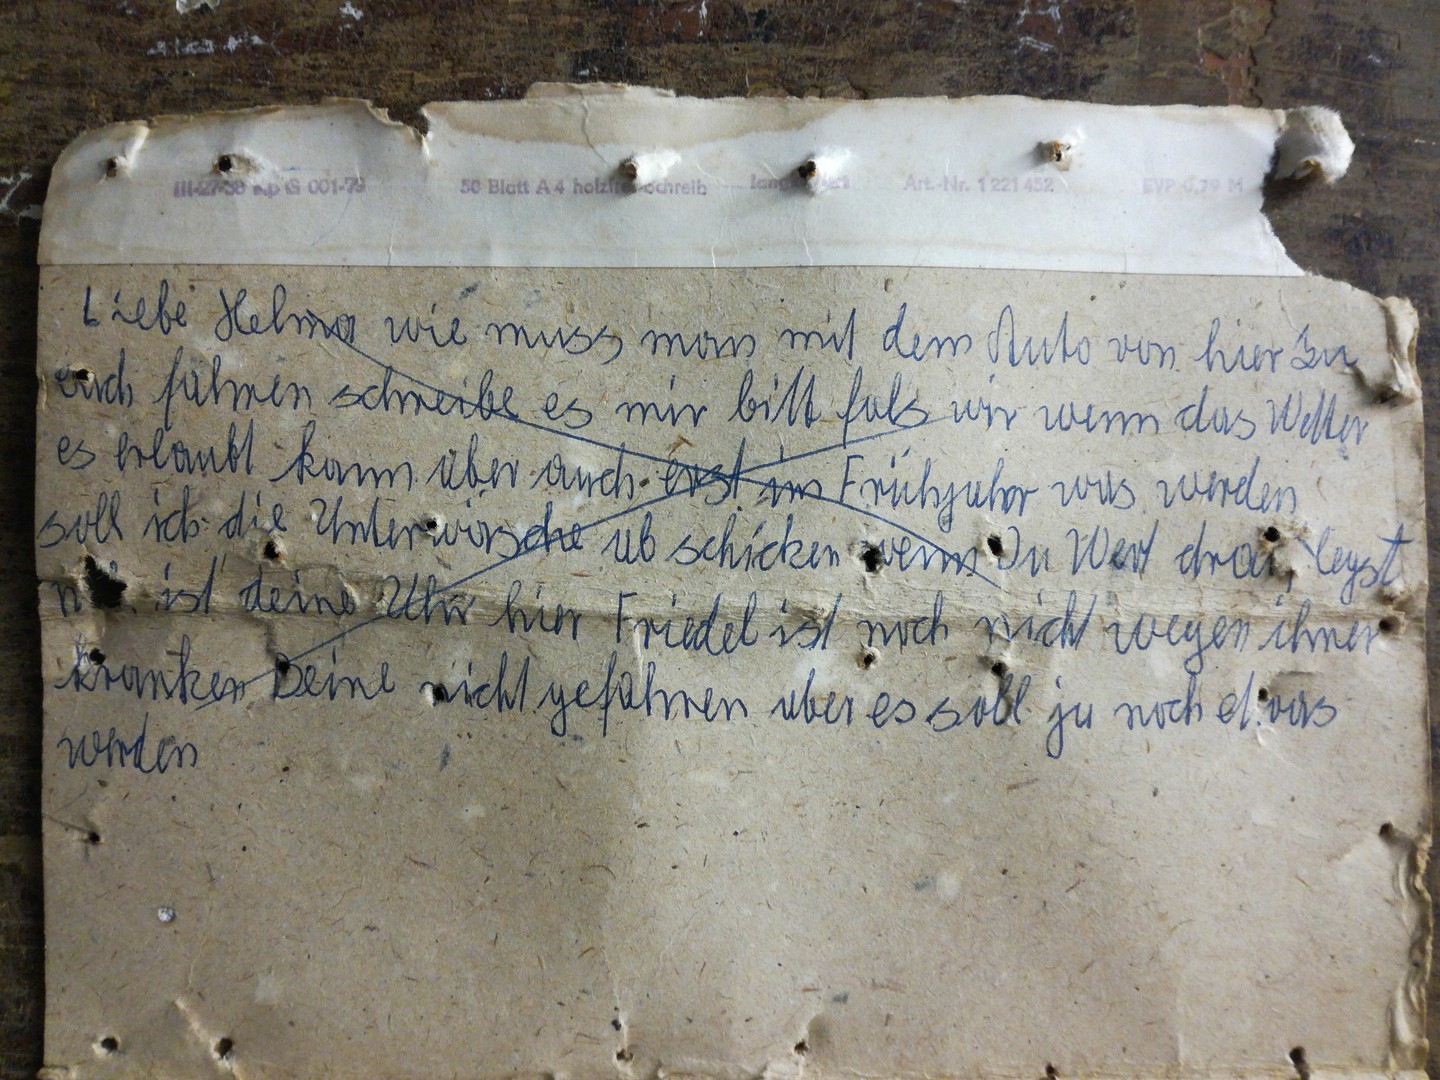 III-27-36 Kp G 001-79 50 Blatt A 4 holzfrei Schreib Art.-Nr. 1 221 452 EVP 0,79 M
Liebe Helma wie muss man mit dem Auto von hier zu
euch fahren schreibe es mir bitt fals wir wenn das Wetter
es erlaubt kann aber auch erst im Frühjahr was werden
soll ich die Unterwäsche ab schicken wenn Du Wert drauf legst
ist deine Uhr hier Friedel ist noch nicht wegen ihrer
kranken Beine nicht gefahren aber es soll ja noch etwas
werden